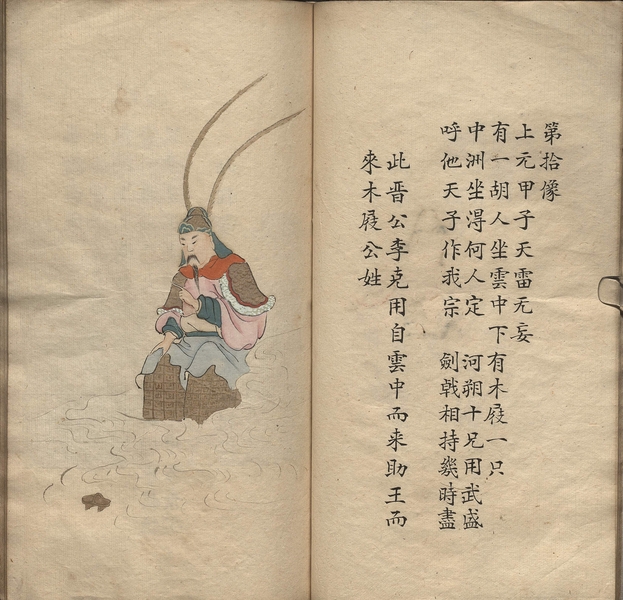 第拾像
上元甲子天雷无妄
有一胡人坐雲中下有木屐一只
中洲坐淂何人定　河朔十兄用武盛
呼他天子作我宗　劍戟相持幾時盡
此晋公李克用自雲中而来助王而
來木屐公姓